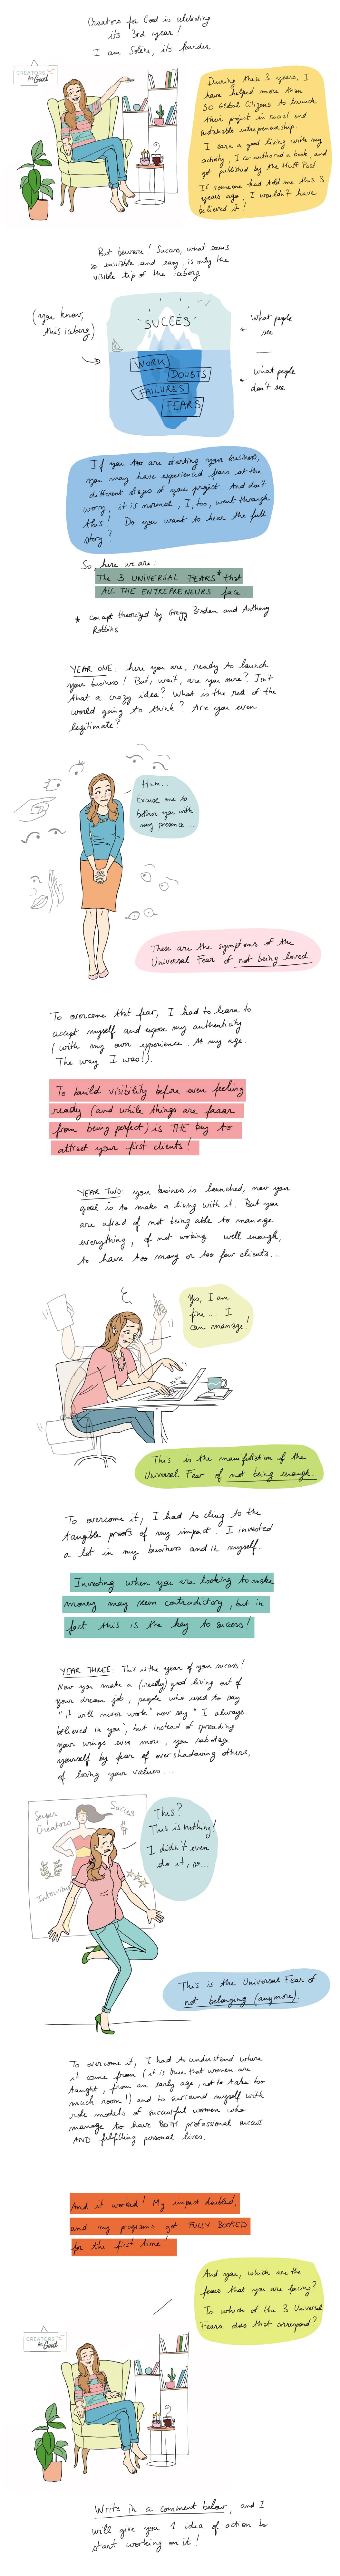 Creators for Good is celebrating
its 3rd year!
I am Solène, its founder.
CREATORS
for Good
During these 3 years, I
have helped more than
50 Global Citizens to launch
their project in social and
sustainable entrepreneurship.
I earn a good living with my
activity, I co-authored a book, and
got published by the Huff Post.
If someone had told me this 3
years ago, I wouldn't have
believed it!
But beware! Success, what seems
so enviable and easy, is only the
visible tip of the iceberg.
(you know,
this iceberg)
SUCCÈS
WORK
DOUBTS
FAILURES
FEARS
what people
see
what people
don't see
If you too are starting your business,
you may have experienced fears at the
different stages of your project. And don't
worry, it is normal, I, too, went through
this! Do you want to hear the full
story?
So, here we are:
The 3 UNIVERSAL FEARS* that
ALL THE ENTREPRENEURS face
* concept theorized by Gregg Braden and Anthony
Robbins
YEAR ONE: here you are, ready to launch
your business! But, wait, are you sure? Isn't
that a crazy idea? What is the rest of the
world going to think? Are you even
legitimate?
Hum...
Excuse me to
bother you with
my presence...
These are the symptoms of the
Universal Fear of not being loved.
To overcome that fear, I had to learn to
accept myself and expose my authenticity
(with my own experience. At my age.
The way I was!).
To build visibility before even feeling
ready (and while things are faaar
from being perfect) is THE key to
attract your first clients!
YEAR TWO: your business is launched, now your
goal is to make a living with it. But you
are afraid of not being able to manage
everything, of not working well enough,
to have too many or too few clients...
Yes, I am
fine.... I
can manage!
This is the manifestation of the
Universal Fear of not being enough.
To overcome it, I had to cling to the
tangible proofs of my impact. I invested
a lot in my business and in myself.
Investing when you are looking to make
money may seem contradictory, but in
fact this is the key to success!
YEAR THREE: This is the year of your success!
Now you make a (really) good living out of
your dream job, people who used to say
"it will never work" now say "I always
believed in you", but instead of spreading
your wings even more, you sabotage
yourself by fear of overshadowing others,
of losing your values...
Super
Creators
Succes
$
Interview
This?
This is nothing!
I didn't even
do it, so...
This is the Universal Fear of
not belonging (anymore).
To overcome it, I had to understand where
it came from (it is true that women are
taught, from an early age, not to take too
much room!) and to surround myself with
role models of successful women who
manage to have BOTH professional success
AND fulfilling personal lives.
And it worked! My impact doubled,
and my programs got FULLY BOOKED
for the first time!
And you, which are the
fears that you are facing?
To which of the 3 Universal
Fears does that correspond?
CREATORS
for Good
Write in a comment below, and I
will give you 1 idea of action to
start working on it!